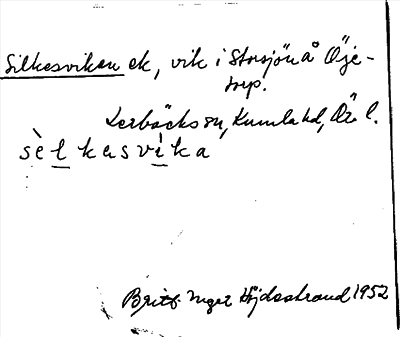 Silkesviken ek, vik i Storsjön å Öje-
torp.
Lerbäcks sn, Kumla hd, Ör l.
sèlkesvìka
Britt Inger Höjdestrand 1952